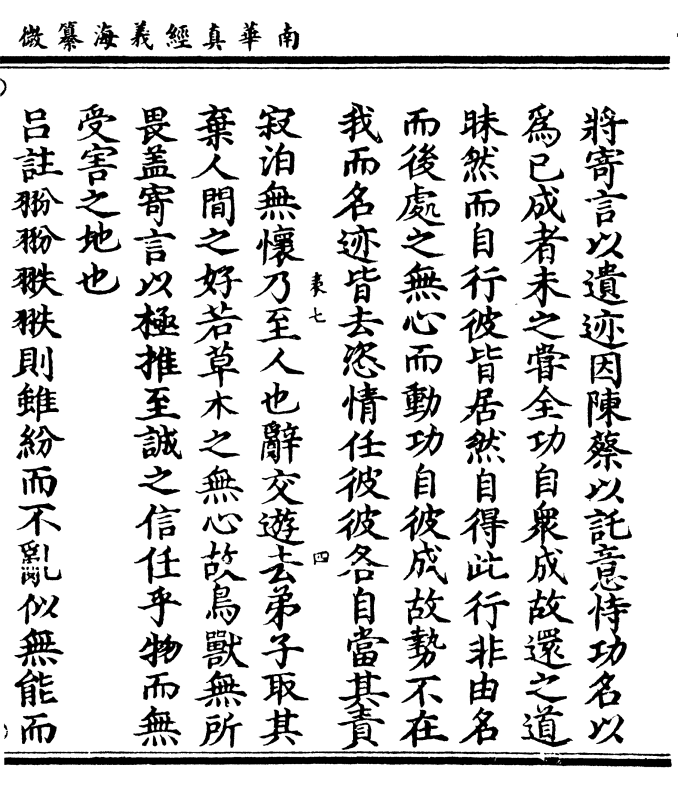 南華真經義海纂微
將寄言以遺迹因陳蔡以託意恃功名以
為已成者未之甞全功自衆成故還之道
昧然而自行彼皆居然自得此行非由名
而後處之無心而動功自彼成故勢不在
我而名迹皆去恣情任彼彼各自當其責
表七
四
寂泊無懷乃至人也辭交遊去弟子取其
棄人間之好若草木之無心故鳥獸無所
畏蓋寄言以極推至誠之信任乎物而無
受害之地也
呂註翂翂翐翐則雖紛而不亂似無能而